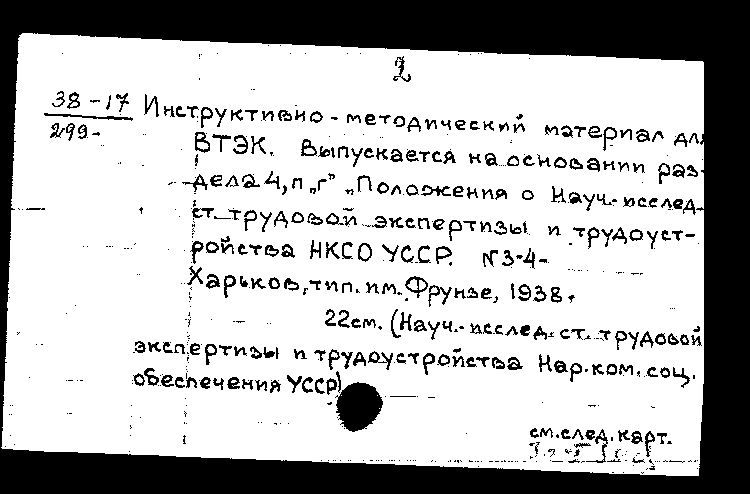 2
38-17 Инструктивно-методический материал для
299- ВТЭК. Выпускается на основании раз-
дела 4, п „г" „Положения о Науч.-исслед.
ст. трудовой экспертизы и трудоуст-
ройства НКСО УССР. №3-4-
Харьков, тип. им. Фрунзе, 1938.
22см. (Науч.-исслед. ст. трудовой
экспертизы и трудоустройства Нар.ком. соц.
обеспечения УССР)
см. след. карт.